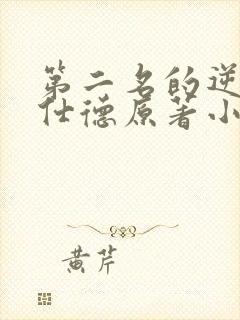 第二名的逆
仕德原著小
黄芹